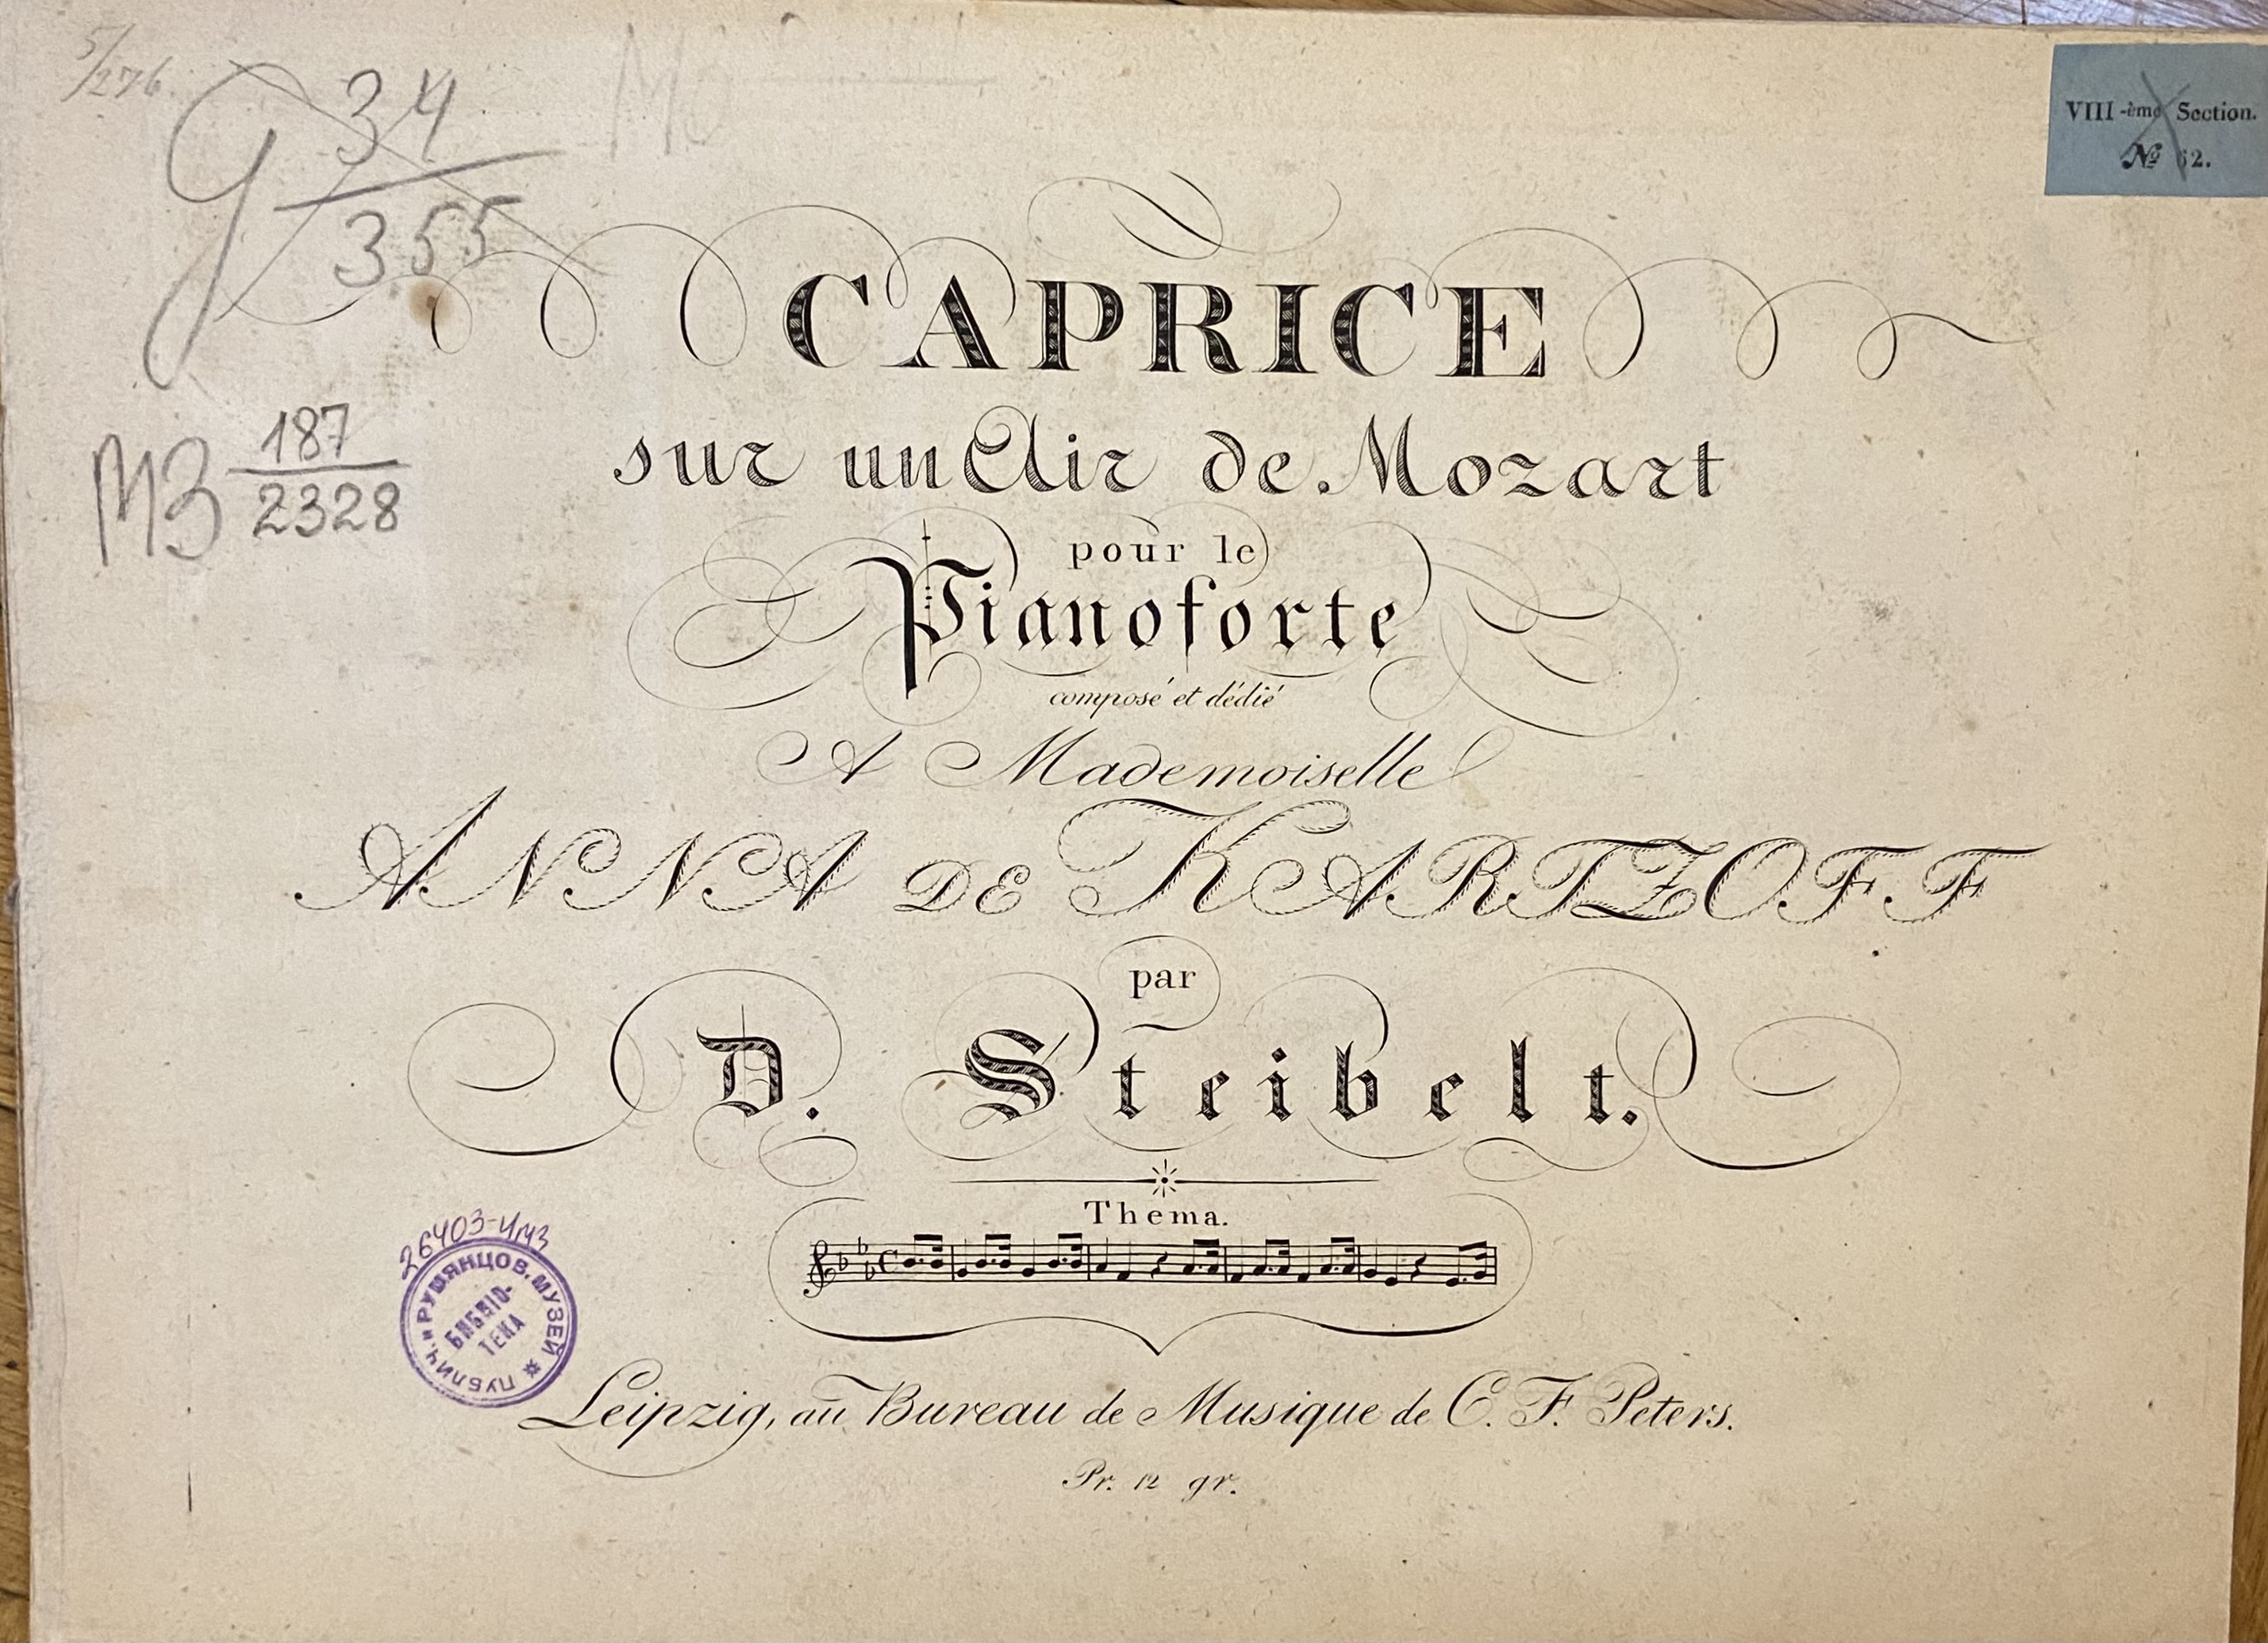 5/276.
g 34
355
VIII-ème Section.
№ 62.
M3 187
2328
CAPRICE
sur un Air de Mozart
pour le
Pianoforte
composé et dédié
A Mademoiselle
ANNA DE KARTZOFF
par
D. Steibelt.
Thema.
26403-ИМЗ
ПУБЛИЧ. и РУМЯНЦОВ. МУЗЕЙ
БИБЛІО-
ТЕКА
Leipzig, au Bureau de Musique de C. F. Peters.
Pr. 12 gr.